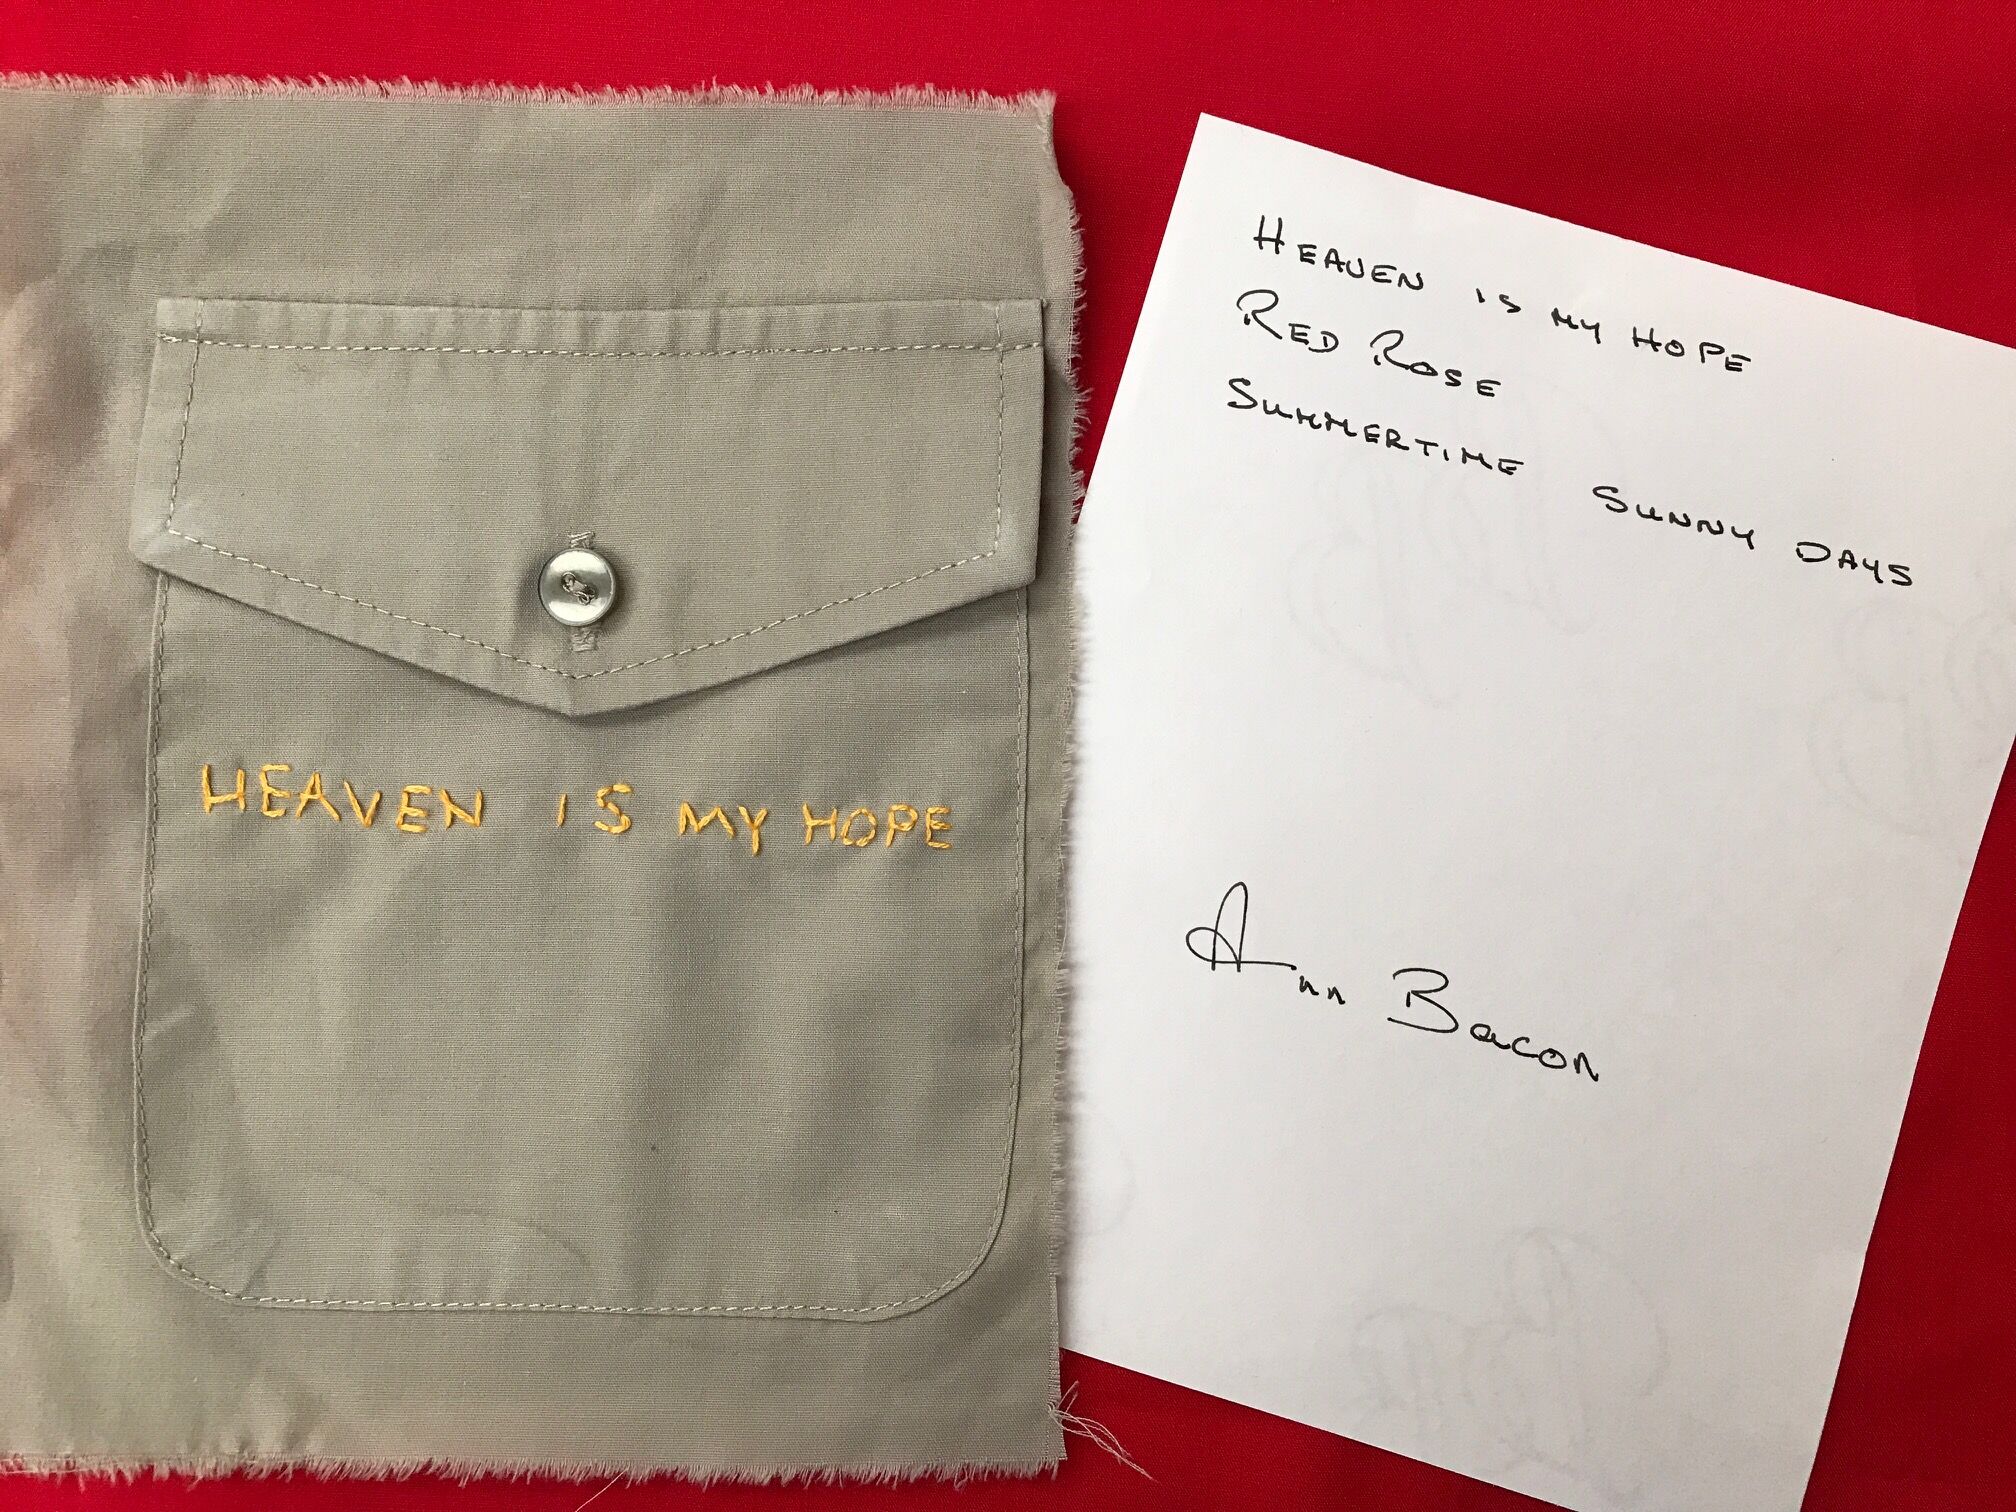 HEAVEN IS MY HOPE
HEAVEN IS MY HOPE
RED ROSE
SUMMERTIME SUNNY DAYS
Ann Bacon